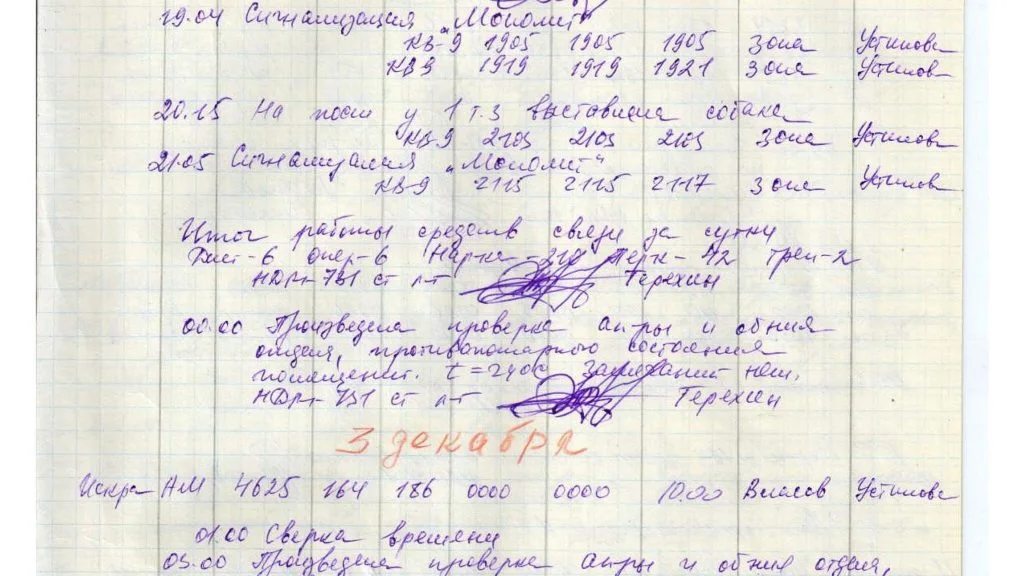 19.04 Сигнализация „Монолит“
КВ-9 1905 1905 1905 Зона Устинова
КВ9 1919 1919 1921 Зона Устинов
20.15 На посты у 1 т.з выставлена собака
КВ-9 2103 2103 2103 Зона Устинов
21.05 Сигнализация „Монолит“
КВ-9 2115 2115 2117 Зона Устинов
Итог работы средств связи за сутки
6 Опер-6 42 Трен-2
731 ст л-т Терехин
00.00 Произведена проверка ап-ры и обния
отдел, противопожарного состояния
помещений. t = 240С Замечаний нет.
731 ст л-т Терехин
3 декабря
Искра АМ 4625 164 186 0000 0000 10.00 Власов Устинова
01.00 Сверка времени
03.00 Произведена проверка ап-ры и обния отдел,